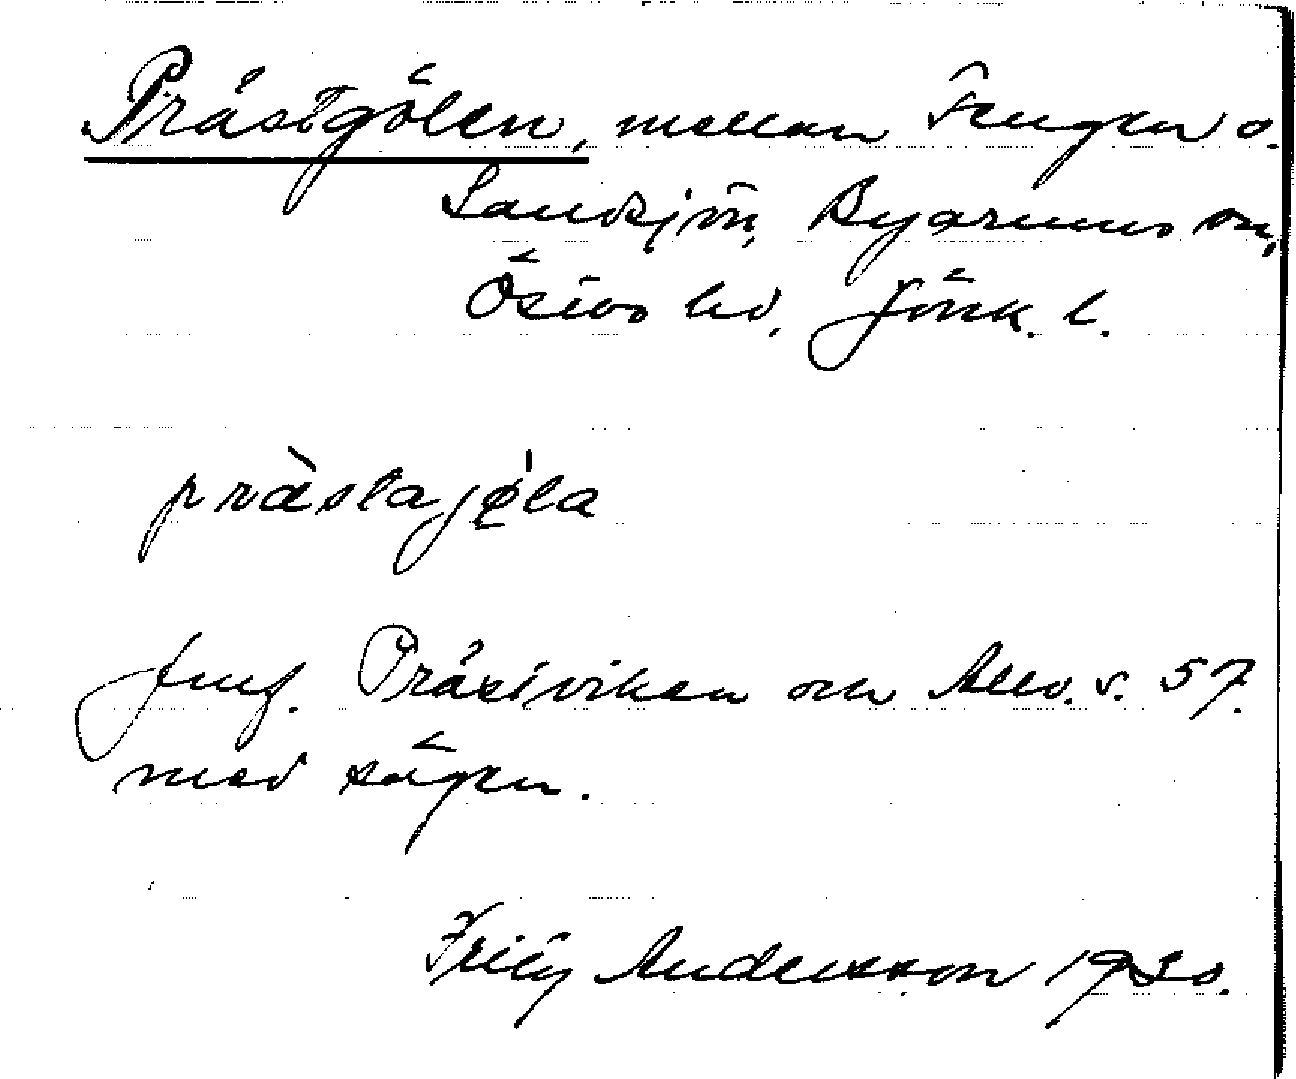 Prästgölen, mellan Fängen o.
Landsjön, Byarums sn,
Östbo hd, Jönk. l.
prästajöla
Jmf. Prästviken och s. 57.
med sägen.
Andersson 1930.